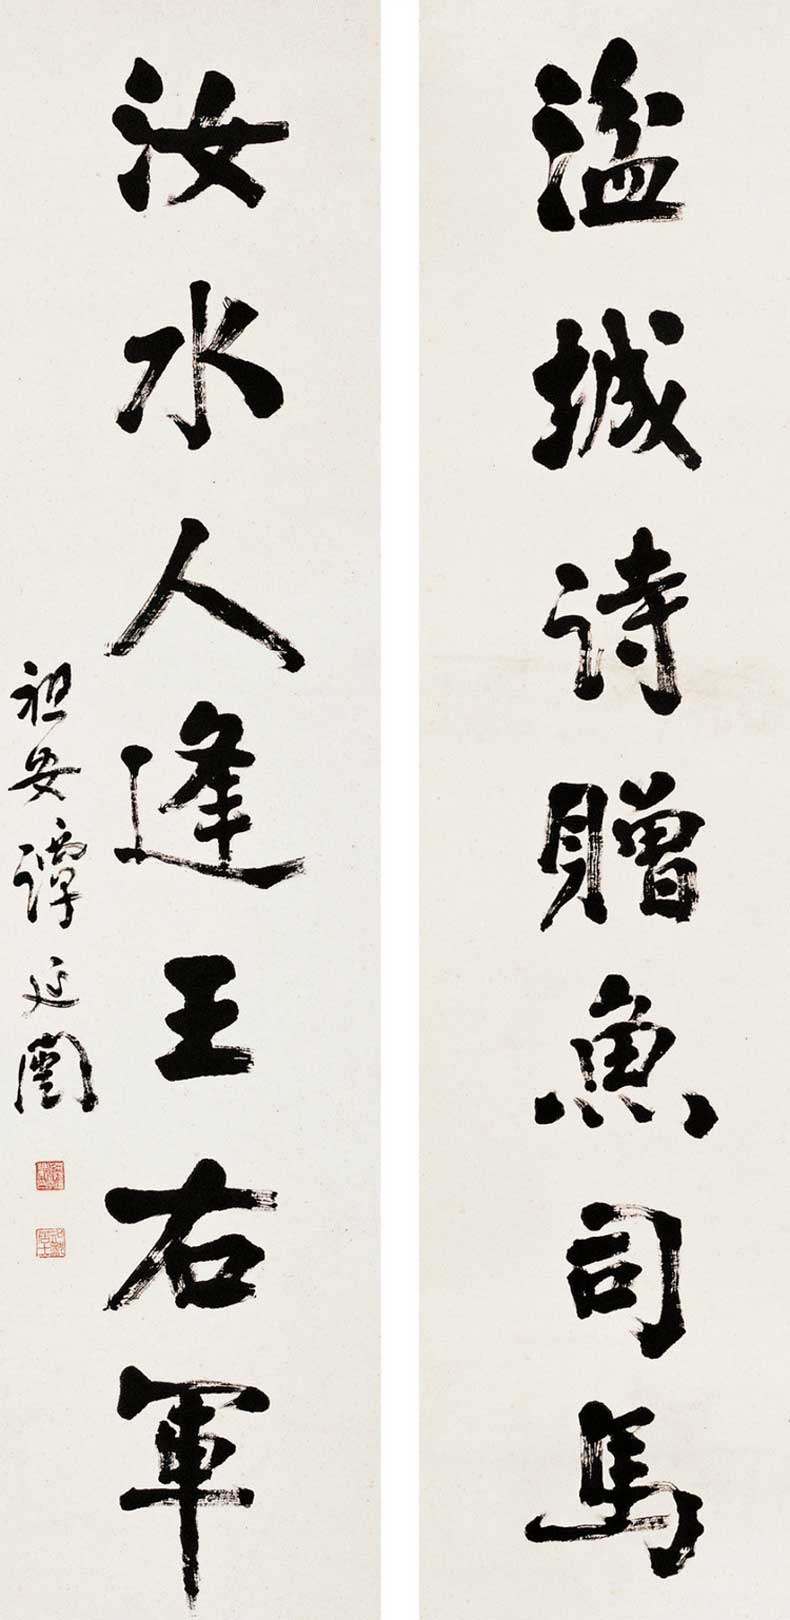 湓城詩贈魚司馬
汝水人逢王右軍
祖安譚延闓